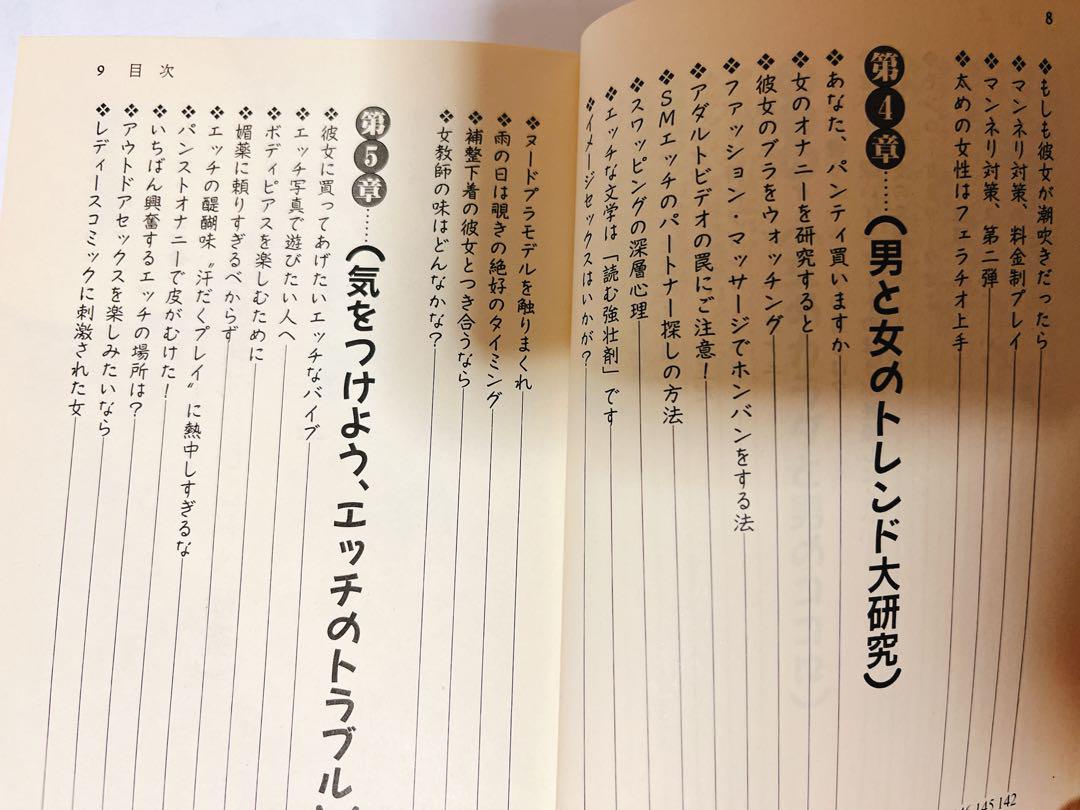 8
❖もしも彼女が潮吹きだったら
❖マンネリ対策、料金制プレイ
❖マンネリ対策、第二弾
❖太めの女性はフェラチオ上手
第4章……(男と女のトレンド大研究)
❖あなた、パンティ買いますか
❖女のオナニーを研究すると
❖彼女のブラをウォッチング
❖ファッション・マッサージでホンバンをする法
❖アダルトビデオの罠にご注意！
❖SMエッチのパートナー探しの方法
❖スワッピングの深層心理
❖エッチな文学は「読む強壮剤」です
❖イメージセックスはいかが？
145 142
9 目次
❖ヌードプラモデルを触りまくれ
❖雨の日は覗きの絶好のタイミング
❖補整下着の彼女とつき合うなら
❖女教師の味はどんなかな？
第5章……(気をつけよう、エッチのトラブル
❖彼女に買ってあげたいエッチなバイブ
❖エッチ写真で遊びたい人へ
❖ボディピアスを楽しむために
❖媚薬に頼りすぎるべからず
❖エッチの醍醐味〝汗だくプレイ〟に熱中しすぎるな
❖パンストオナニーで皮がむけた！
❖いちばん興奮するエッチの場所は？
❖アウトドアセックスを楽しみたいなら
❖レディースコミックに刺激された女